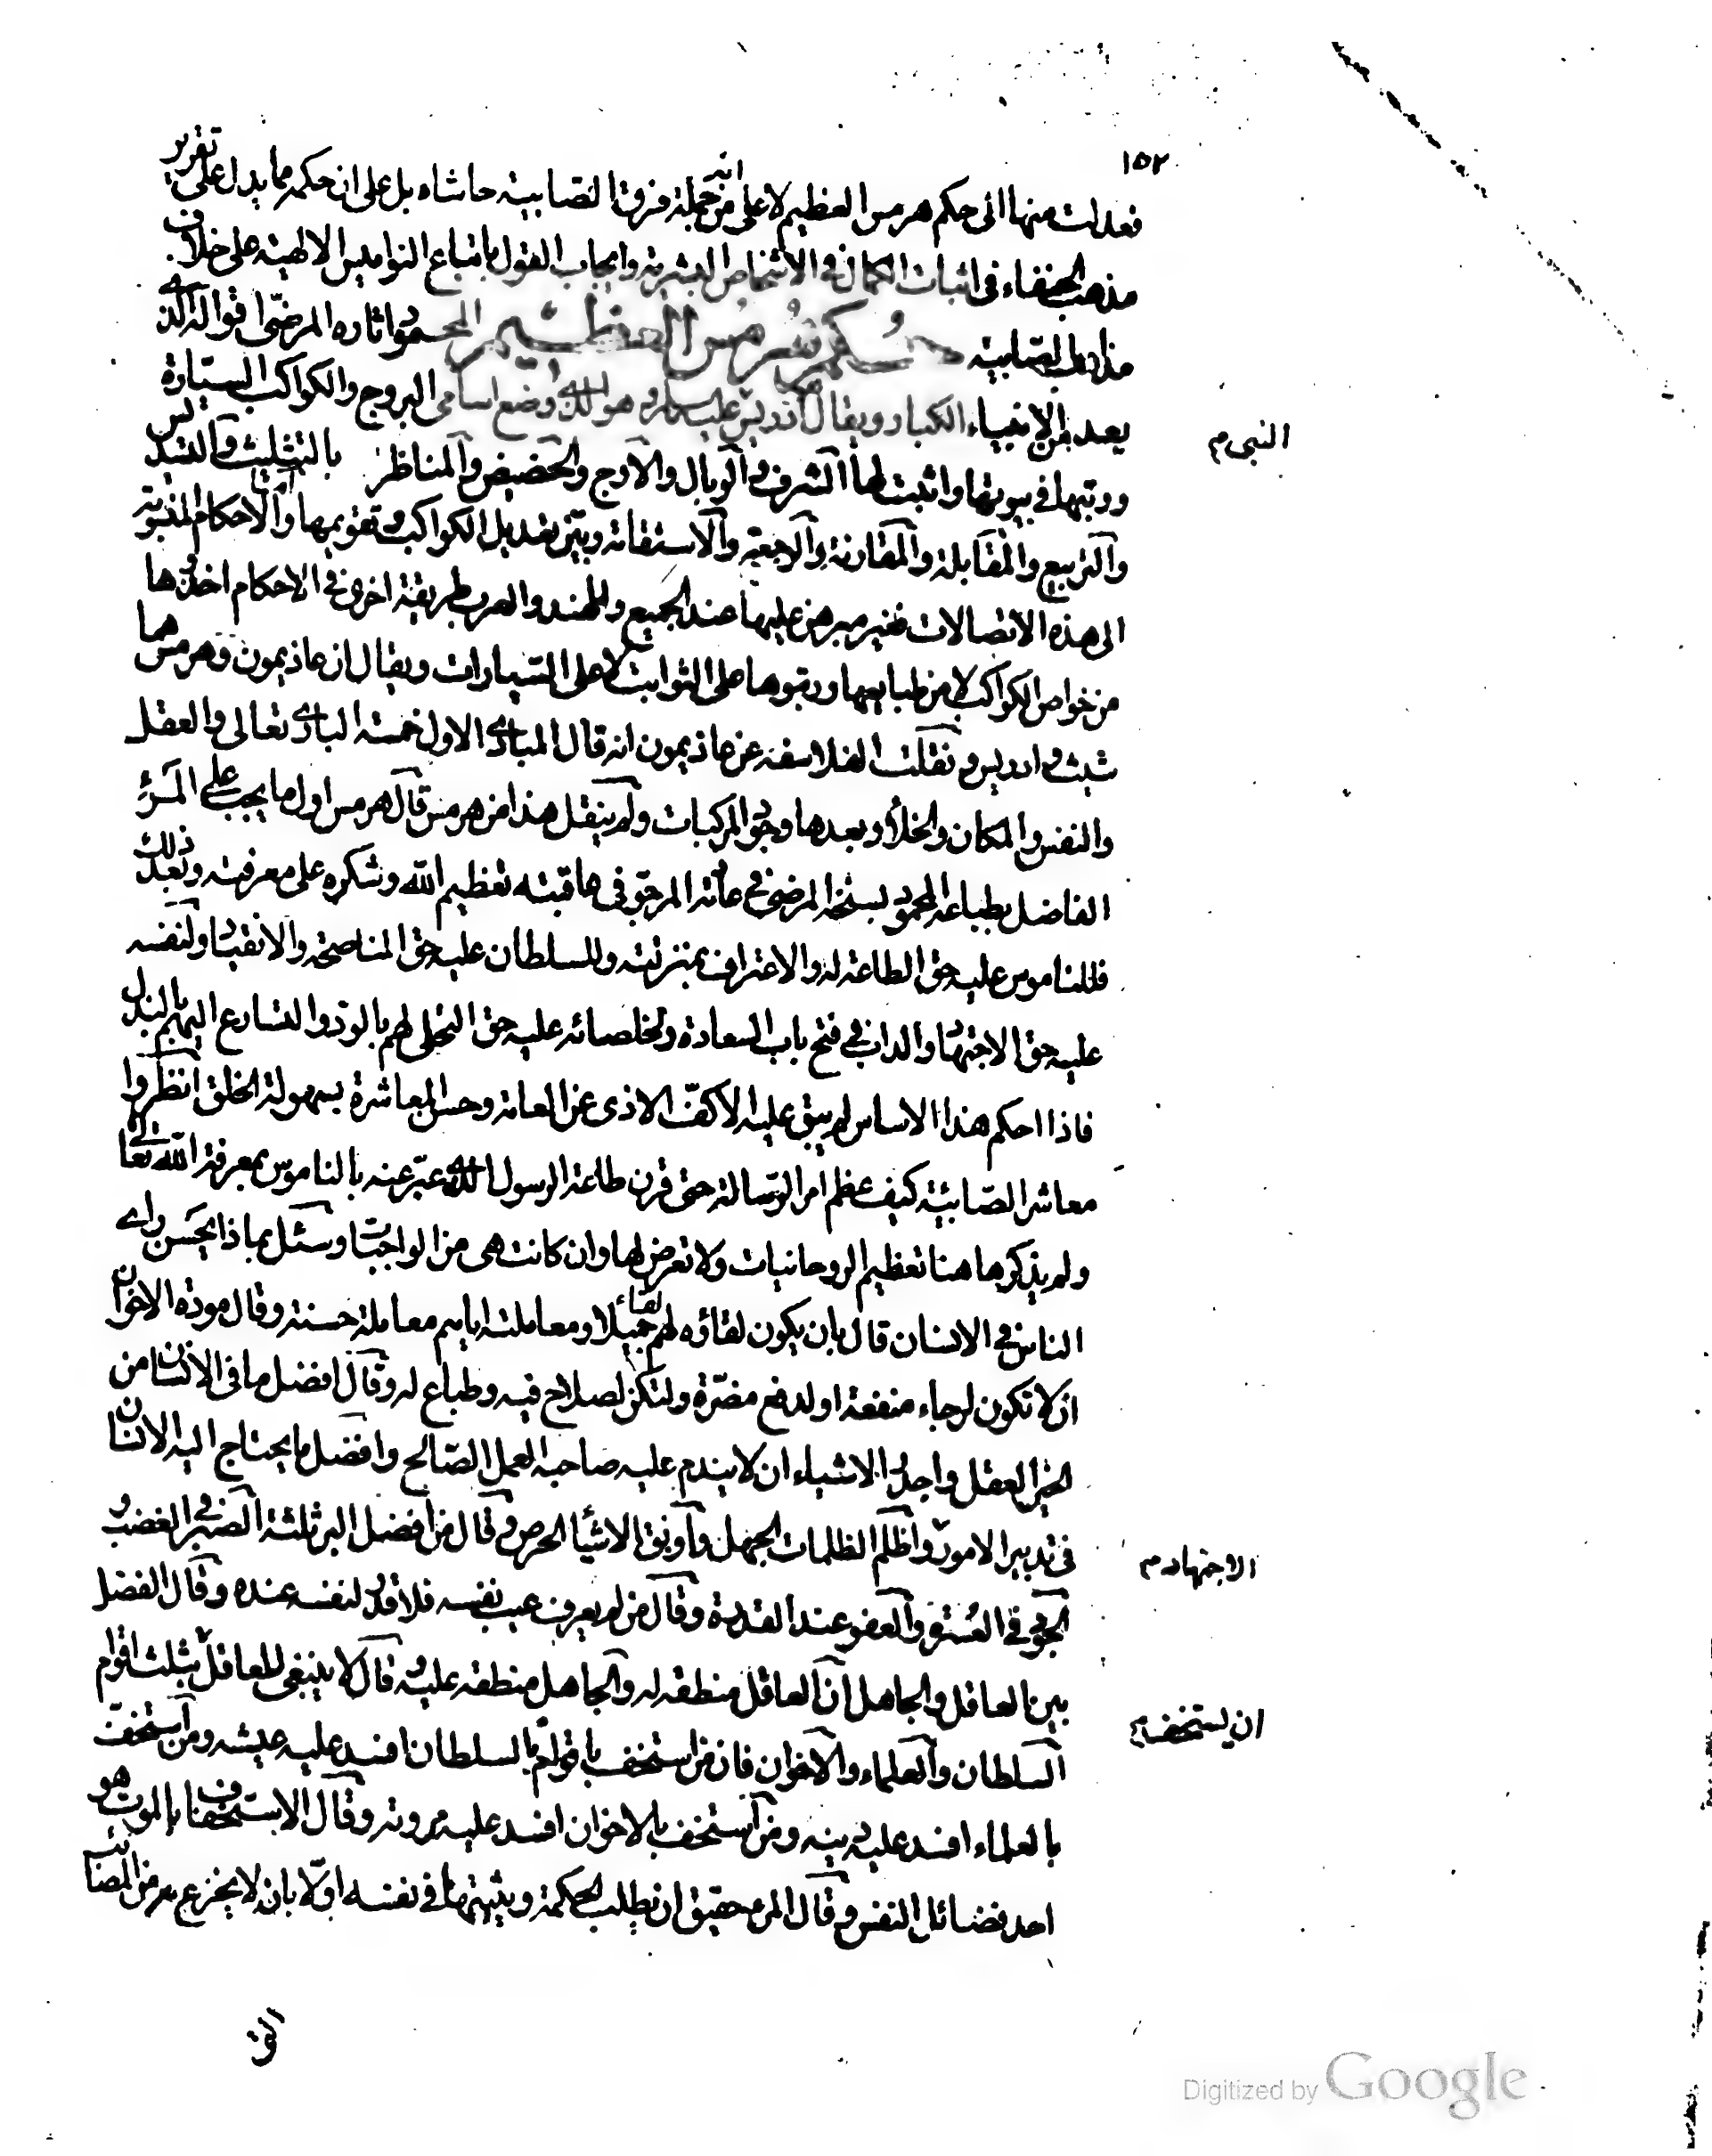 ١٥٢
فعدلت منها الى حكم هرمس العظيم لا على انه من جملة فرق الصابية حاشاه بل على ان حكمه مما يدل على تقرير
مذهب الحنفاء فى اثبات الكمال فى الاشخاص البشرية وايجاب القول باتباع النواميس الالهية على خلاف
مذاهب الصابية حكم هرمس العظيم المحمود اثاره المرضى اقواله الذى
يعد من الانبياء الكبار ويقال هو ادريس النبى عليه السلام وهو الذى وضع اسامى البروج والكواكب السيارة
ورتبها فى بيوتها واثبت لها الشرف والوبال والاوج والحضيض والمناظر بالتثليث والتسديس
والتربيع والمقابلة والمقارنة والرجعة والاستقامة وبين تعديل الكواكب وتقويمها واما الاحكام المنسوبة
الى هذه الاتصالات فغير مبرهن عليها عند الجميع وللهند والعرب طريقة اخرى فى الاحكام اخذوها
من خواص الكواكب لا من طبايعها ورتبوها على الثوابت لا على السيارات ويقال ان عاذيمون وهرمس هما
شيث وادريس ونقلت الفلاسفة عن عاذيمون انه قال المبادى الاول خمسة البارى تعالى والعقل
والنفس والمكان والخلأ وبعدها وجود المركبات ولم ينقل هذا من هرمس قال هرمس اول ما يجب على المرء
الفاضل بطباعه المحمود بسنخه المرضى فى عادته المرجو فى عاقبته تعظيم الله وشكره على معرفته وبعد ذلك
فللناموس عليه حق الطاعة له والاعتراف بمنزلته وللسلطان عليه حق المناصحة والانقياد ولنفسه
عليه حق الاجتهاد والداب فى فتح باب السعادة ولخلصائه عليه حق التحلى لهم بالود والتسارع اليهم بالبذل
فاذا احكم هذا الاساس لم يبق عليه الا كف الاذى عن العامة وحسن المعاشرة بسهولة الخلق انظروا
معاشر الصابئية كيف عظم امر الرسالة حتى قرن طاعة الرسول الذى عبر عنه بالناموس بمعرفة الله تعالى
ولم يذكر هاهنا تعظيم الروحانيات ولا تعرض لها وان كانت هى من الواجبات وسئل بماذا يحسن راى
الناس فى الانسان قال بان يكون لقاؤه لهم لقاء جميلا ومعاملته اياهم معاملة حسنة وقال مودة الاخوان
ان لا تكون لرجاء منفعة او لدفع مضرة ولكن لصلاح فيه وطباع له وقال افضل ما فى الانسان من
الخير العقل واجدر الاشياء ان لا يندم عليه صاحبه العمل الصالح وافضل ما يحتاج اليه الانسان
فى تدبير الامور الاجتهاد واظلم الظلمات الجهل واوبق الاشياء الحرص وقال من افضل البر ثلثة الصدق فى الغضب
الجود فى العسرة والعفو عند القدرة وقال من لم يعرف عيب نفسه فلا قدر لنفسه عنده وقال الفضل
بين العاقل والجاهل ان العاقل منطقه له والجاهل منطقه عليه وقال لا ينبغى للعاقل ان يستخف بثلث اقوام
السلطان والعلماء والاخوان فان من استخف بالسلطان افسد عليه عيشه ومن استخف
بالعلماء افسد عليه دينه ومن استخف بالاخوان افسد عليه مروته وقال الاستخفاف بالموت هو
احد فضائل النفس وقال المرء حقيق ان يطلب الحكمة ويثبتها فى نفسه اولا بان لا يجزع من المصائب
التى